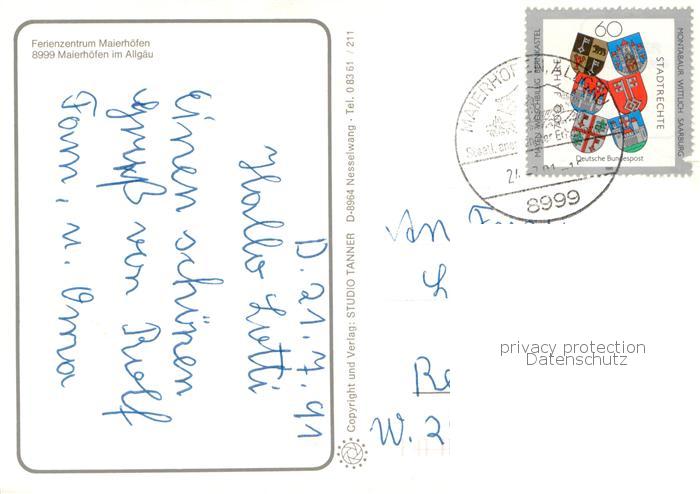 Ferienzentrum Maierhöfen
8999 Maierhöfen im Allgäu
D. 21.7.91
Hallo Lutti
einen schönen
Gruß von Rolf
Fam. u. Oma
Copyright und Verlag: STUDIO TANNER D-8964 Nesselwang · Tel. 0 83 61 / 211
60
MAYEN WELSCHBILLIG BERNKASTEL
700 JAHRE
STADTRECHTE
MONTABAUR WITTLICH SAARBURG
Deutsche Bundespost
MAIERHÖF
Staatl. aner
8999
An
L
Re
W. 2
privacy protection
Datenschutz